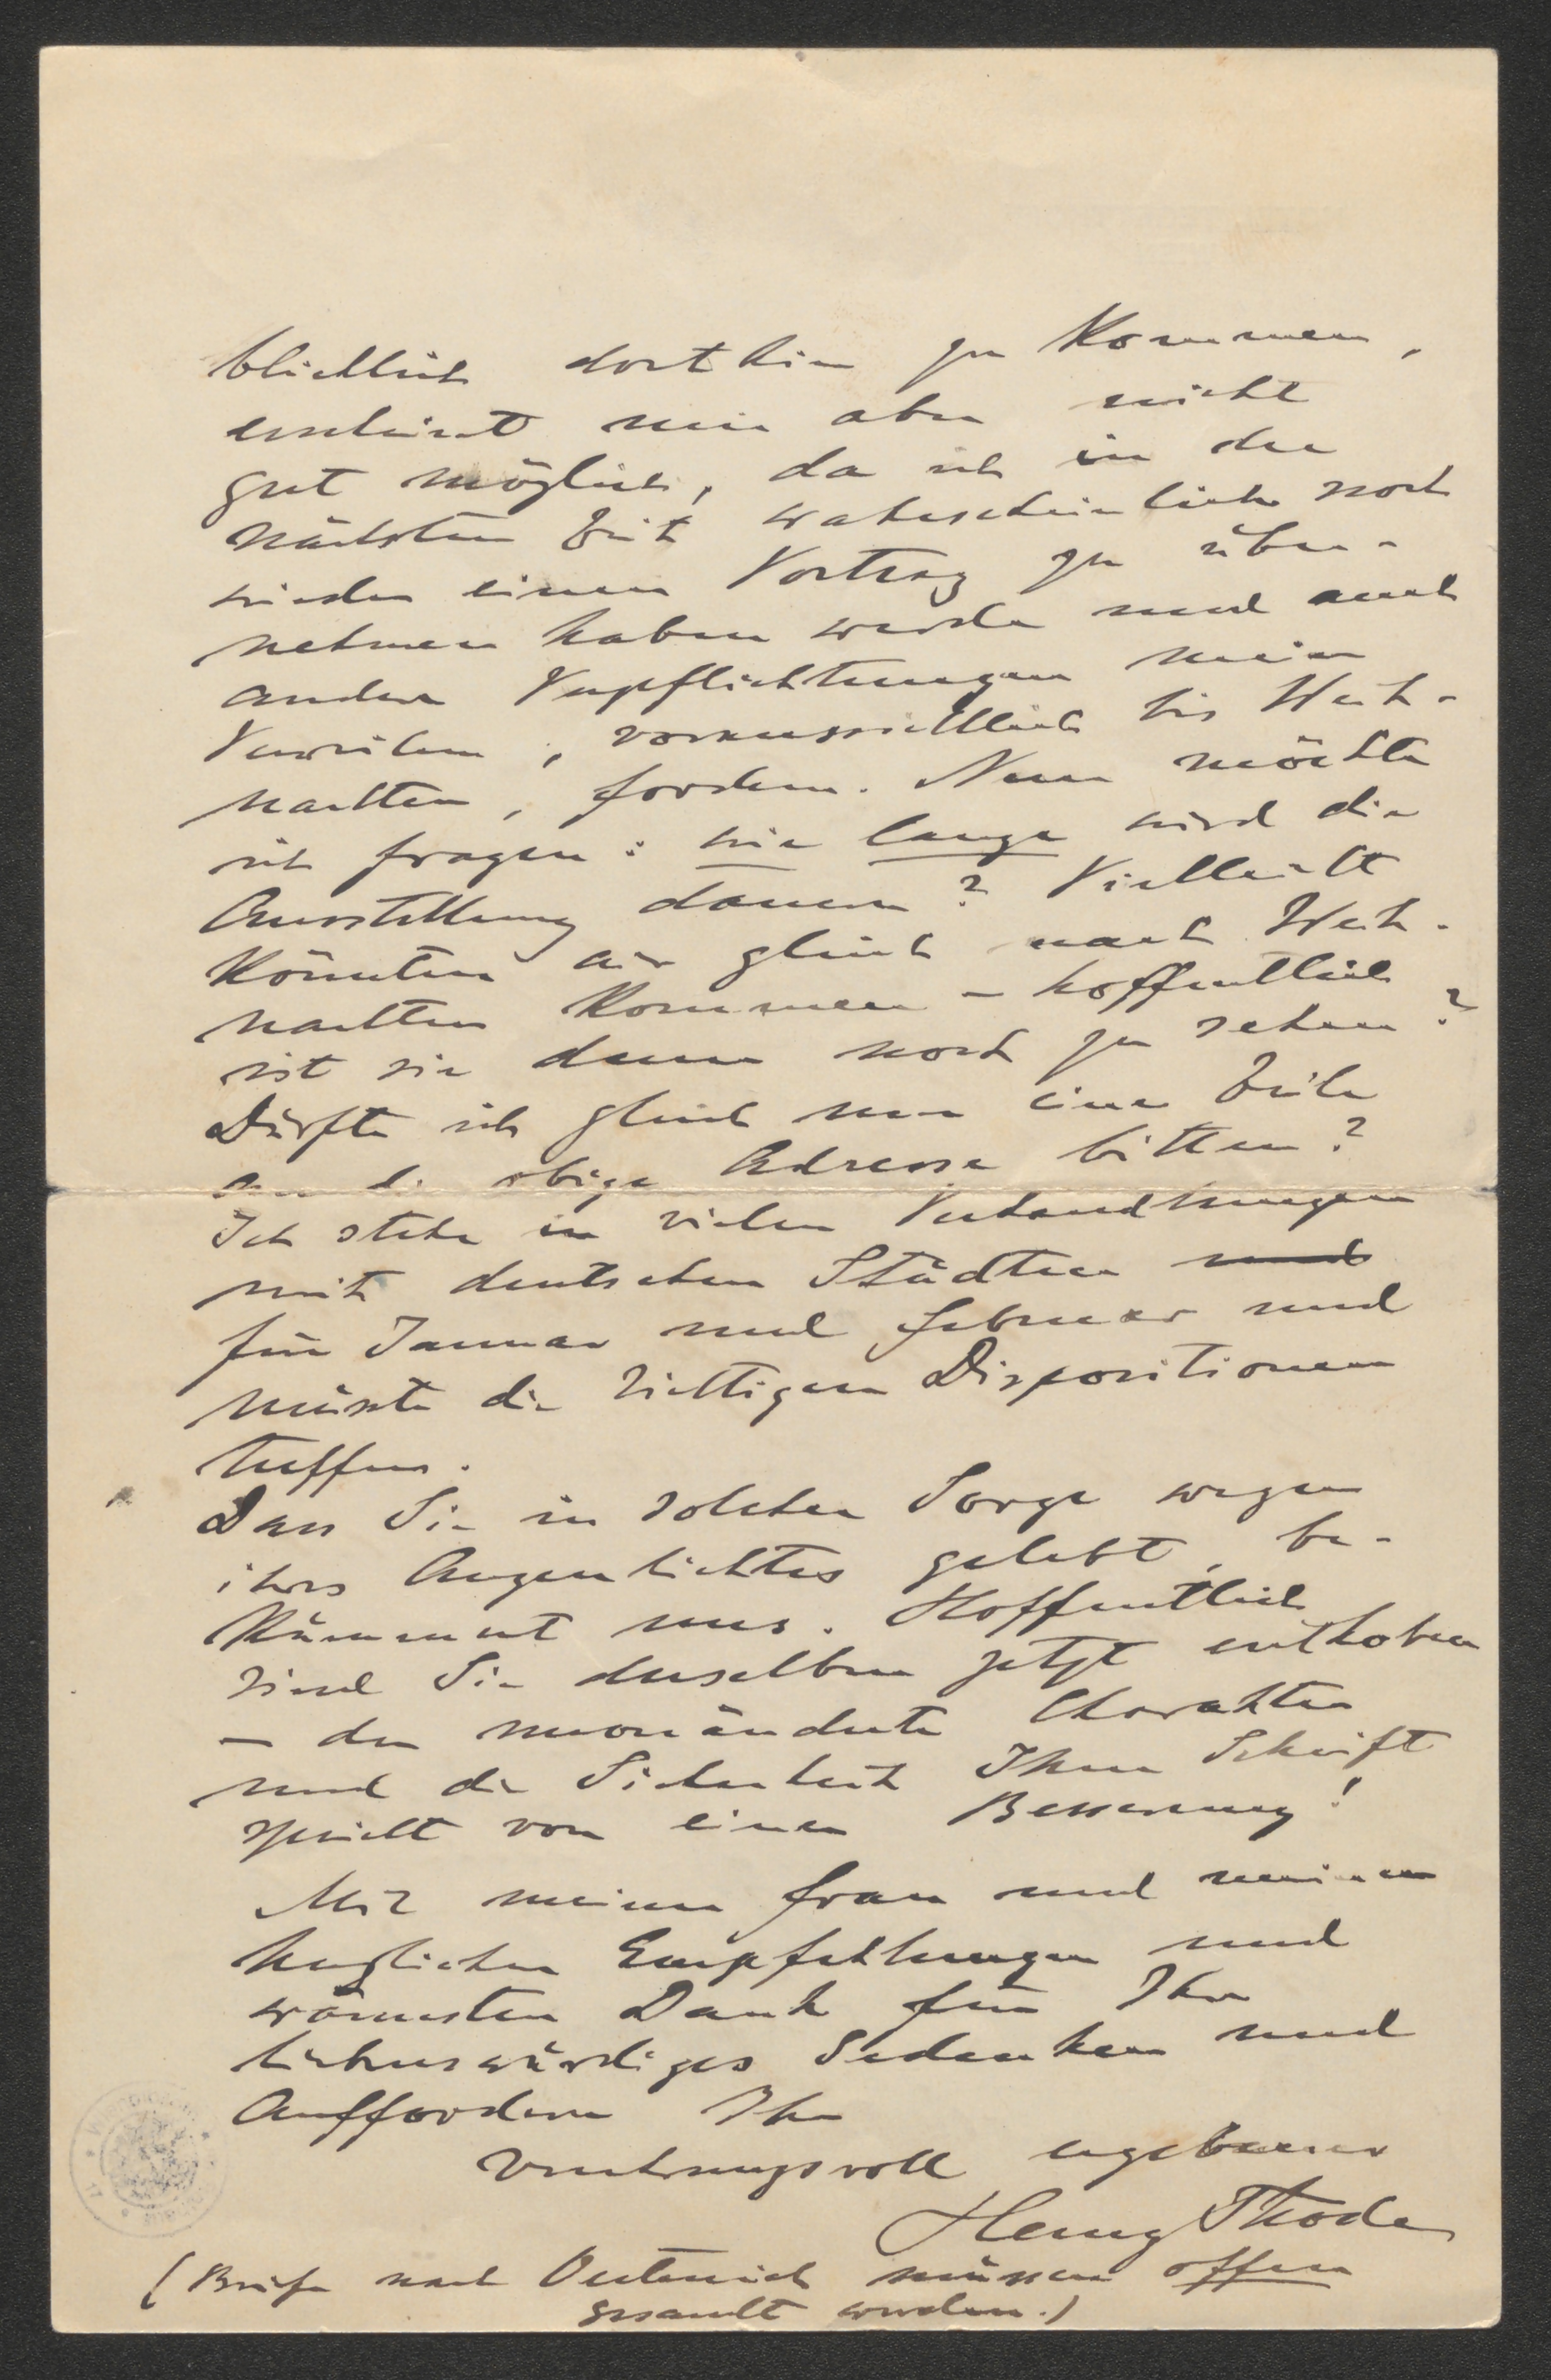 blicklich dorthin zu kommen,
erscheint mir aber nicht
gut möglich, da ich in der
nächsten Zeit wahrscheinlich noch
wieder einen Vortrag zu über-
nehmen haben werde und auch
andere Verpflichtungen mein
Verweilen, voraussichtlich bis Weih-
nachten, fordern. Nun möchte
ich fragen: wie lange wird die
Ausstellung dauern? Vielleicht
könnten wir gleich nach Weih-
nachten kommen – hoffentlich
ist sie dann noch zu sehen?
Dürfte ich gleich um eine Zeile
an die obige Adresse bitten?
Ich stehe in vielen Verhandlungen
mit deutschen Städten und
für Januar und Februar und
müsste die richtigen Dispositionen
treffen.
Dass Sie in solcher Sorge wegen
ihres Augenlichtes gelebt, be-
kümmert uns. Hoffentlich
sind Sie derselben jetzt enthoben
– der unveränderte Charakter
und die Sicherheit Ihrer Schrift
spricht von einer Besserung!
Mit meiner Frau und meinen
herzlichen Empfehlungen und
wärmsten Dank für Ihr
liebenswürdiges Gedenken und
Auffordern Ihr
verehrungsvoll ergebener
Henry Thode
(Briefe nach Oesterreich müssen offen
gesandt werden.)